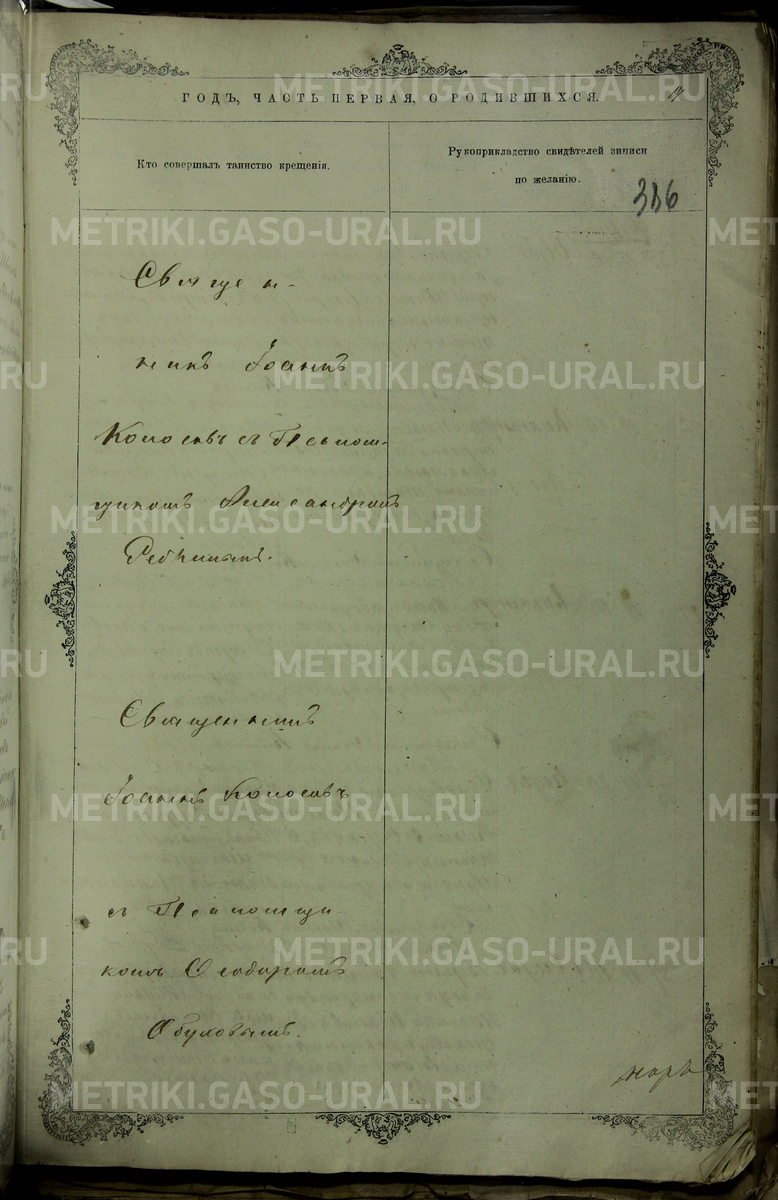 ГОДЪ, ЧАСТЬ ПЕРВАЯ, О РОДИВШИХСЯ.
Кто совершалъ таинство крещенія.
Рукоприкладство свидѣтелей записи
по желанію.
316
Священ-
никъ Іоаннъ
Колосовъ съ Псалом-
щикомъ Александромъ
Священникъ
Іоаннъ Колосовъ
съ Псаломщи-
комъ Ѳеодоромъ
METRIKI.GASO-URAL.RU